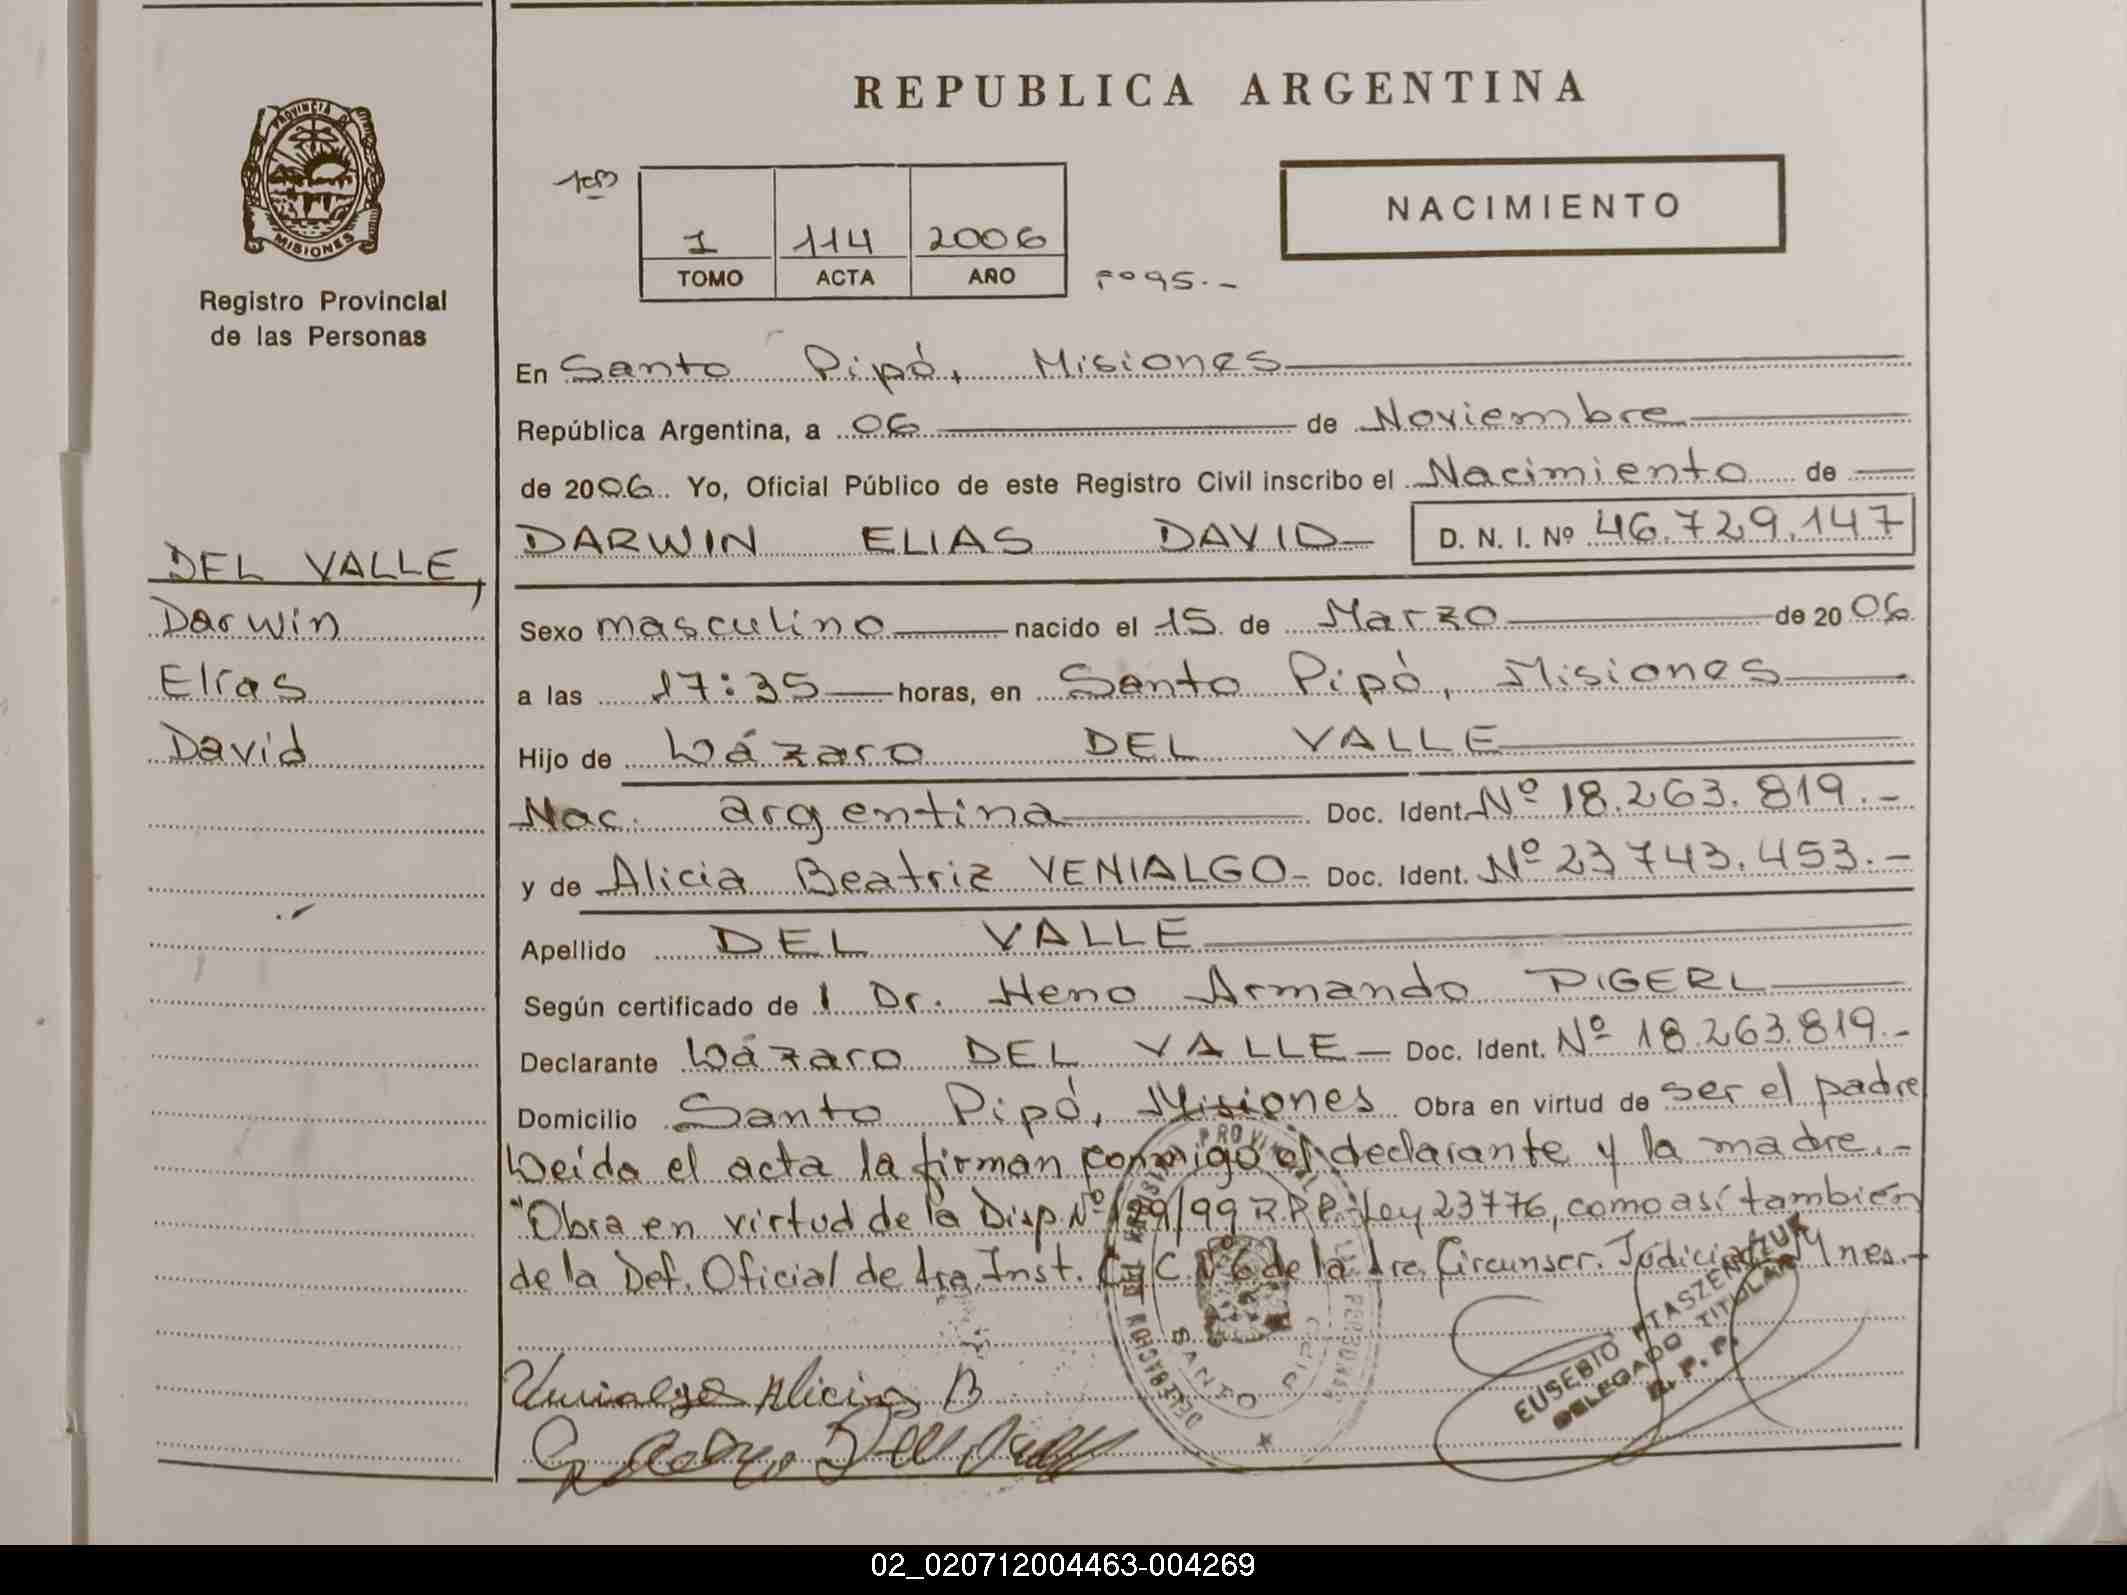 REPUBLICA ARGENTINA
PROVINCIA DE
MISIONES
Registro Provincial
de las Personas
NACIMIENTO
1 114 2006
TOMO ACTA AÑO
Fº 95.-
En Santo Pipó, Misiones
República Argentina, a 06 de Noviembre
de 2006. Yo, Oficial Público de este Registro Civil inscribo el Nacimiento de
DARWIN ELIAS DAVID D. N. I. Nº 46.729.147
DEL VALLE,
Darwin
Elías
David
Sexo masculino nacido el 15 de Marzo de 2006
a las 17:35 horas, en Santo Pipó, Misiones
Hijo de Lázaro DEL VALLE
Nac. argentina Doc. Ident. Nº 18.263.819.-
y de Alicia Beatriz VENIALGO- Doc. Ident. Nº 23743.453.-
Apellido DEL VALLE
Según certificado de l Dr. Heno Armando DIGERL
Declarante Lázaro DEL VALLE Doc. Ident. Nº 18.263.819.-
Domicilio Santo Pipó, Misiones Obra en virtud de ser el padre
Leida el acta la firman conmigo el declarante y la madre.-
"Obra en virtud de la Disp. Nº 129/99 R.P.P. Ley 23776, como así también
de la Def. Oficial de 1ra. Inst. C y C. Nº 6 de la 1re. Circunscr. Judicial Mnes.-
Venialgo Alicia B
EUSEBIO PTASZENCZUK
DELEGADO TITULAR
R. P. P.
02_020712004463-004269